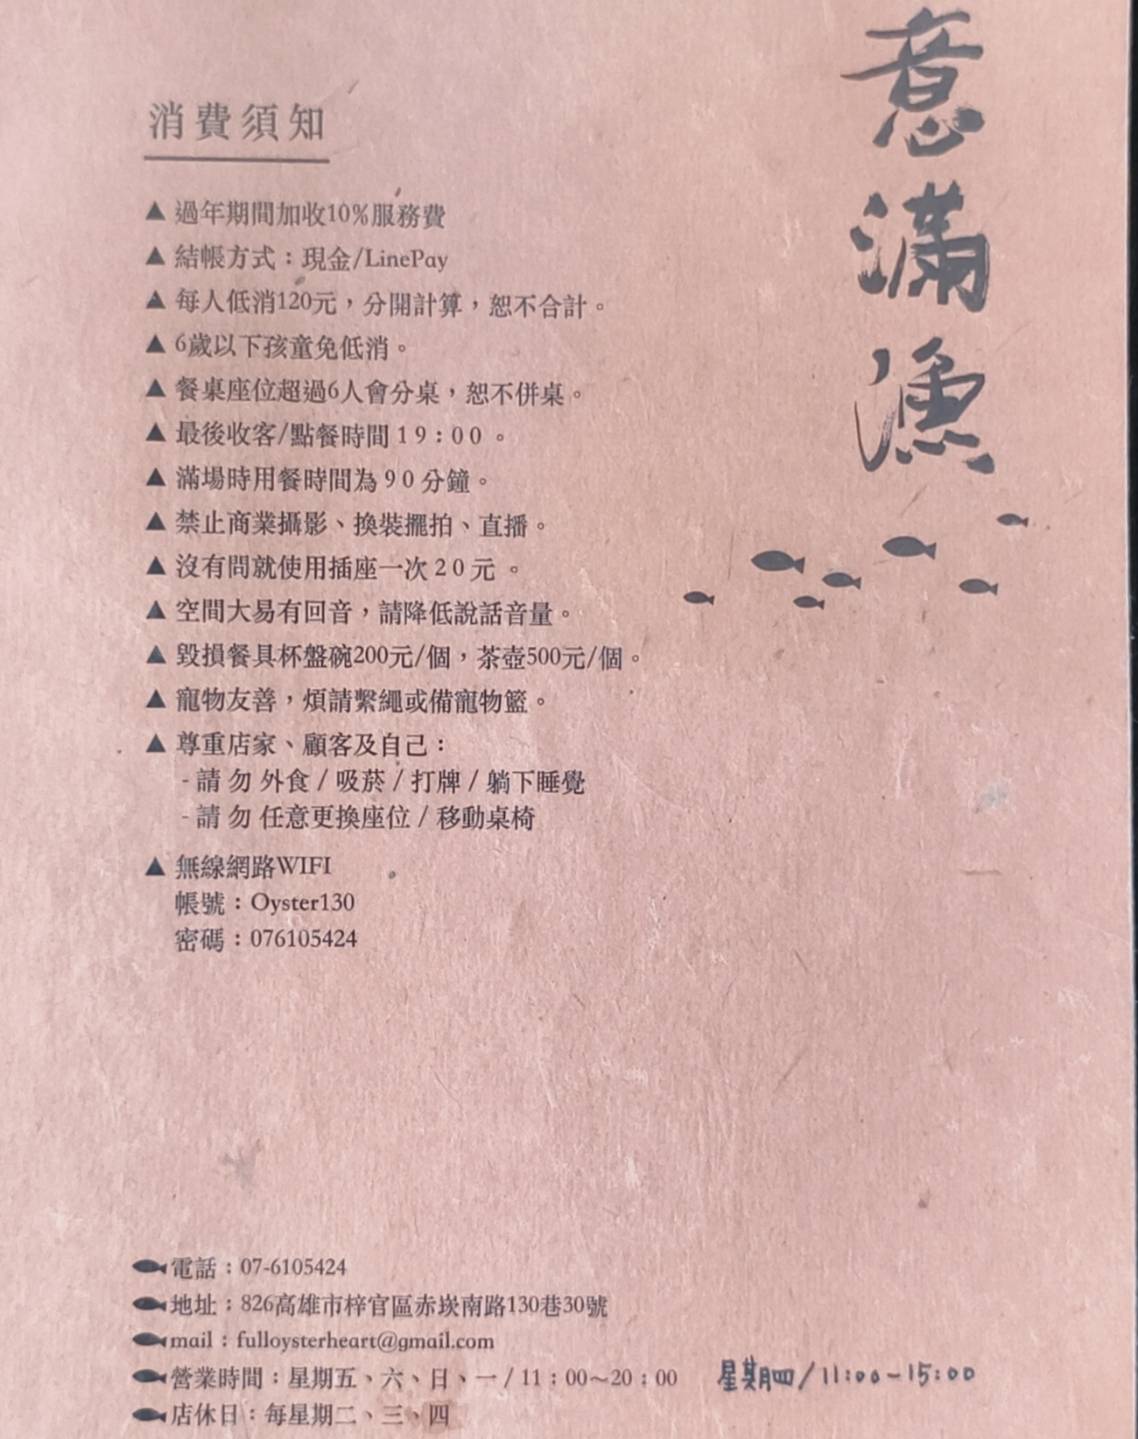 意滿漁
消費須知
▲ 過年期間加收10%服務費
▲ 結帳方式：現金/LinePay
▲ 每人低消120元，分開計算，恕不合計。
▲ 6歲以下孩童免低消。
▲ 餐桌座位超過6人會分桌，恕不併桌。
▲ 最後收客/點餐時間 19:00 。
▲ 滿場時用餐時間為 90 分鐘。
▲ 禁止商業攝影、換裝擺拍、直播。
▲ 沒有問就使用插座一次 20 元 。
▲ 空間大易有回音，請降低說話音量。
▲ 毀損餐具杯盤碗200元/個，茶壺500元/個。
▲ 寵物友善，煩請繫繩或備寵物籃。
▲ 尊重店家、顧客及自己：
- 請 勿 外食 / 吸菸 / 打牌 / 躺下睡覺
- 請 勿 任意更換座位 / 移動桌椅
▲ 無線網路WIFI
帳號：Oyster130
密碼：076105424
電話：07-6105424
地址：826高雄市梓官區赤崁南路130巷30號
mail：fulloysterheart@gmail.com
營業時間：星期五、六、日、一 / 11：00~20：00 星期四/11:00-15:00
店休日：每星期二、三、四